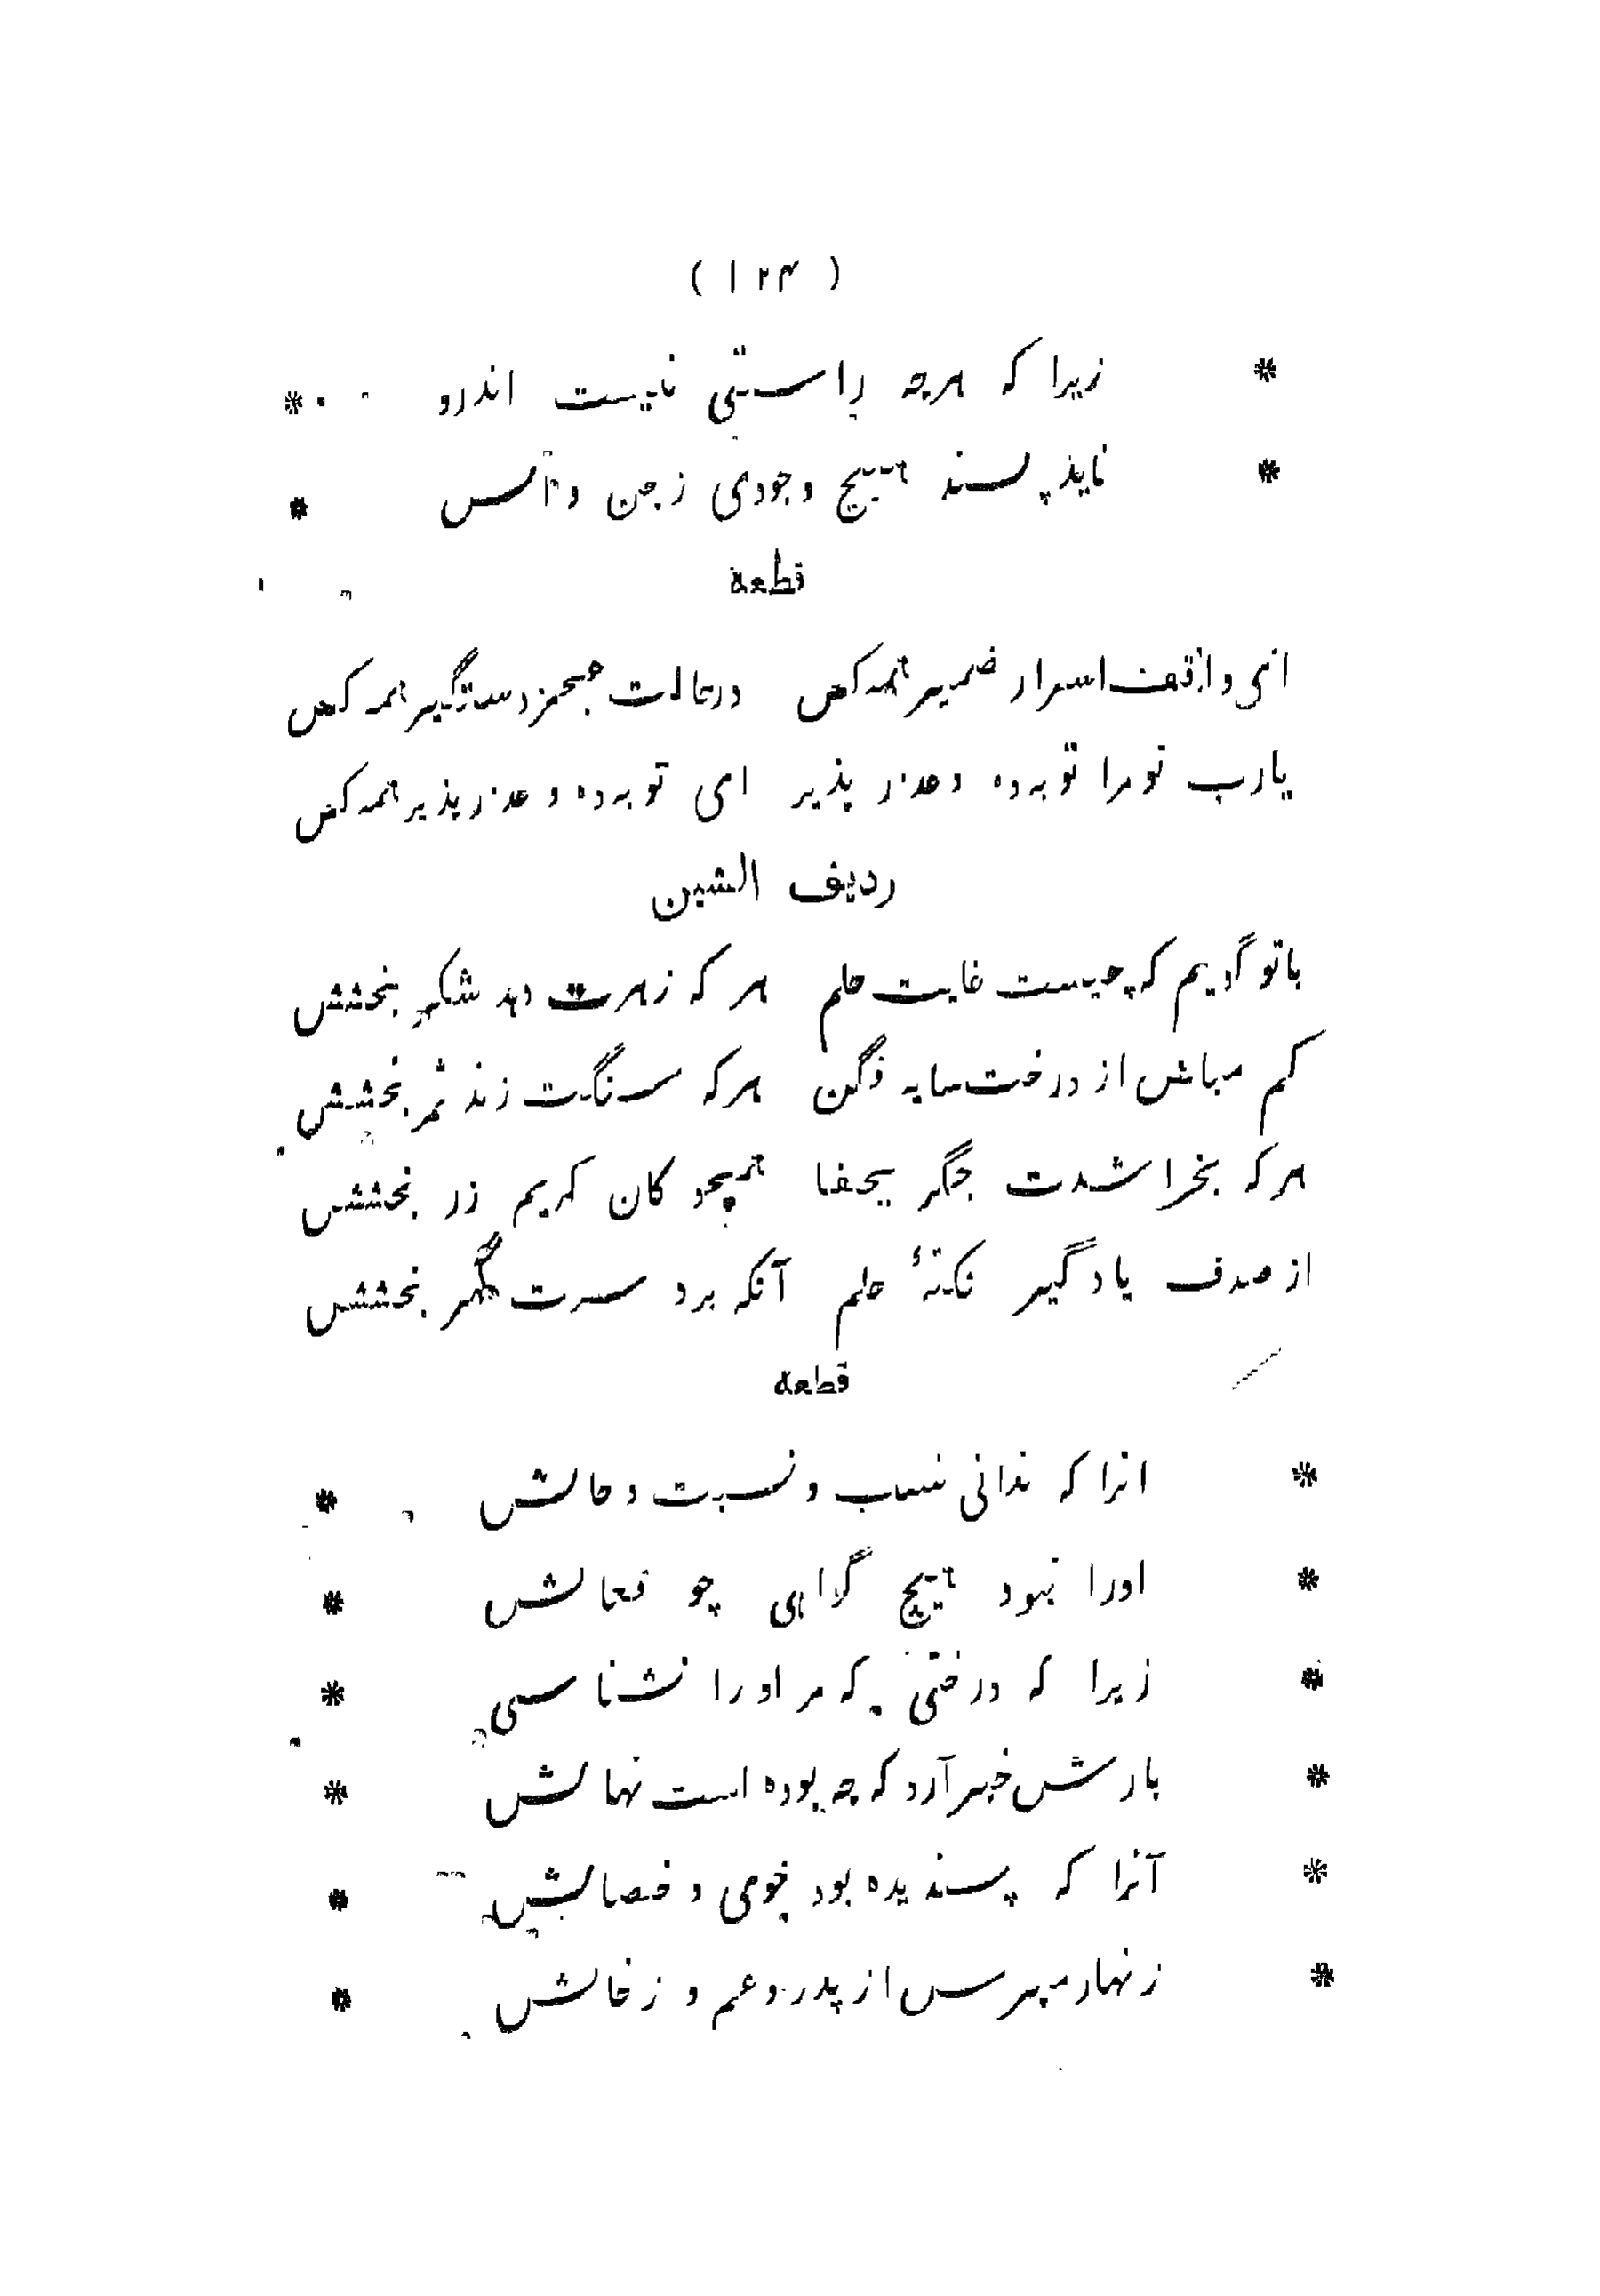 ( ۱۲۴ )
* زیرا که هرچه راستی نیست اندرو *
* ناید پسند هیچ وجودی ز جن و انس *
قطعه
ای واقف اسرار ضمیر همه کس درحالت عجز دستگیر همه کس
یارب تو مرا توبه ده و عذر پذیر ای توبه ده و عذر پذیر همه کس
ردیف الشین
باتو گویم که چیست غایت حلم هر که زهرت دهد شکر بخشش
کم مباش از درخت سایه فگن هرکه سنگت زند ثمر بخشش
هرکه بخراشدت جگر بجفا همچو کان کریم زر بخشش
از صدف یاد گیر نکتۀ حلم آنکه برد سرت گهر بخشش
قطعه
* انرا که ندانی نسب و نسبت و حالش *
* اورا نبود هیچ گواهی چو فعالش *
* زیرا که درختی که مر اورا نشناسی *
* بارش خبر آرد که چه بوده است نهالش *
* آنرا که پسندیده بود خوی و خصالش *
* زنهار مپرس از پدر و عم و ز خالش *